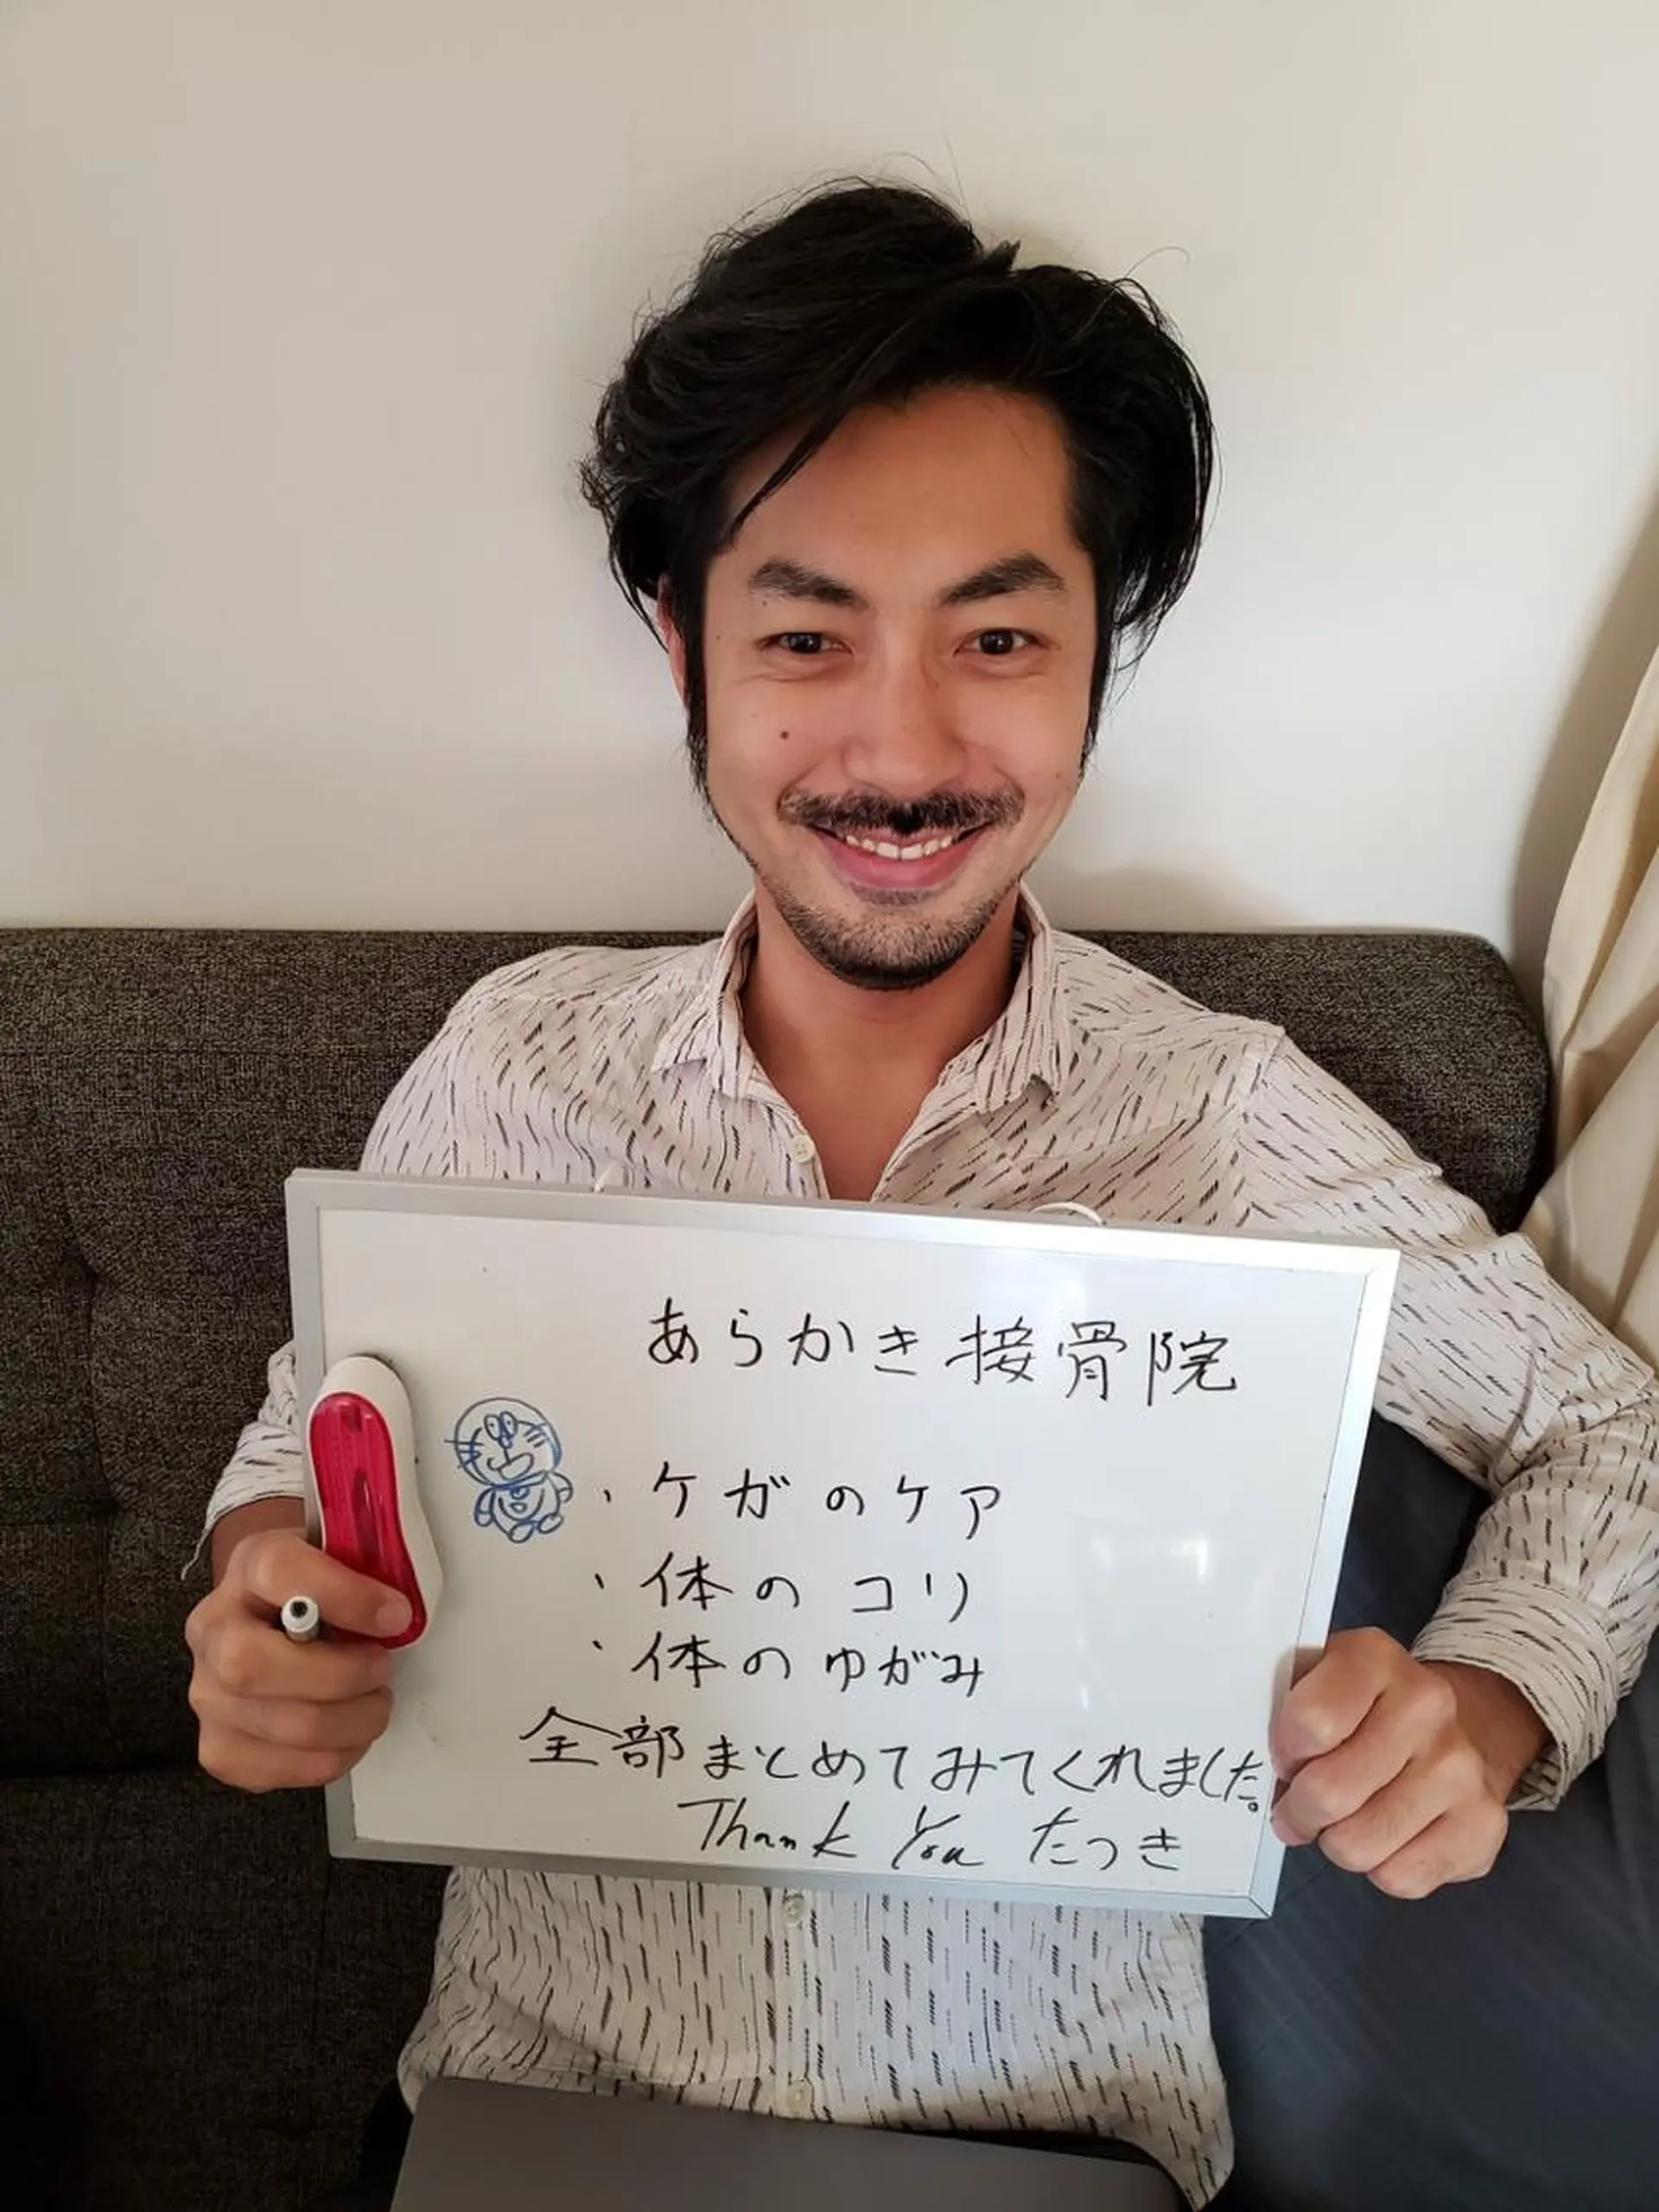 あらかき接骨院
・ケガのケア
・体のコリ
・体のゆがみ
全部まとめてみてくれました。
Thank You たつき